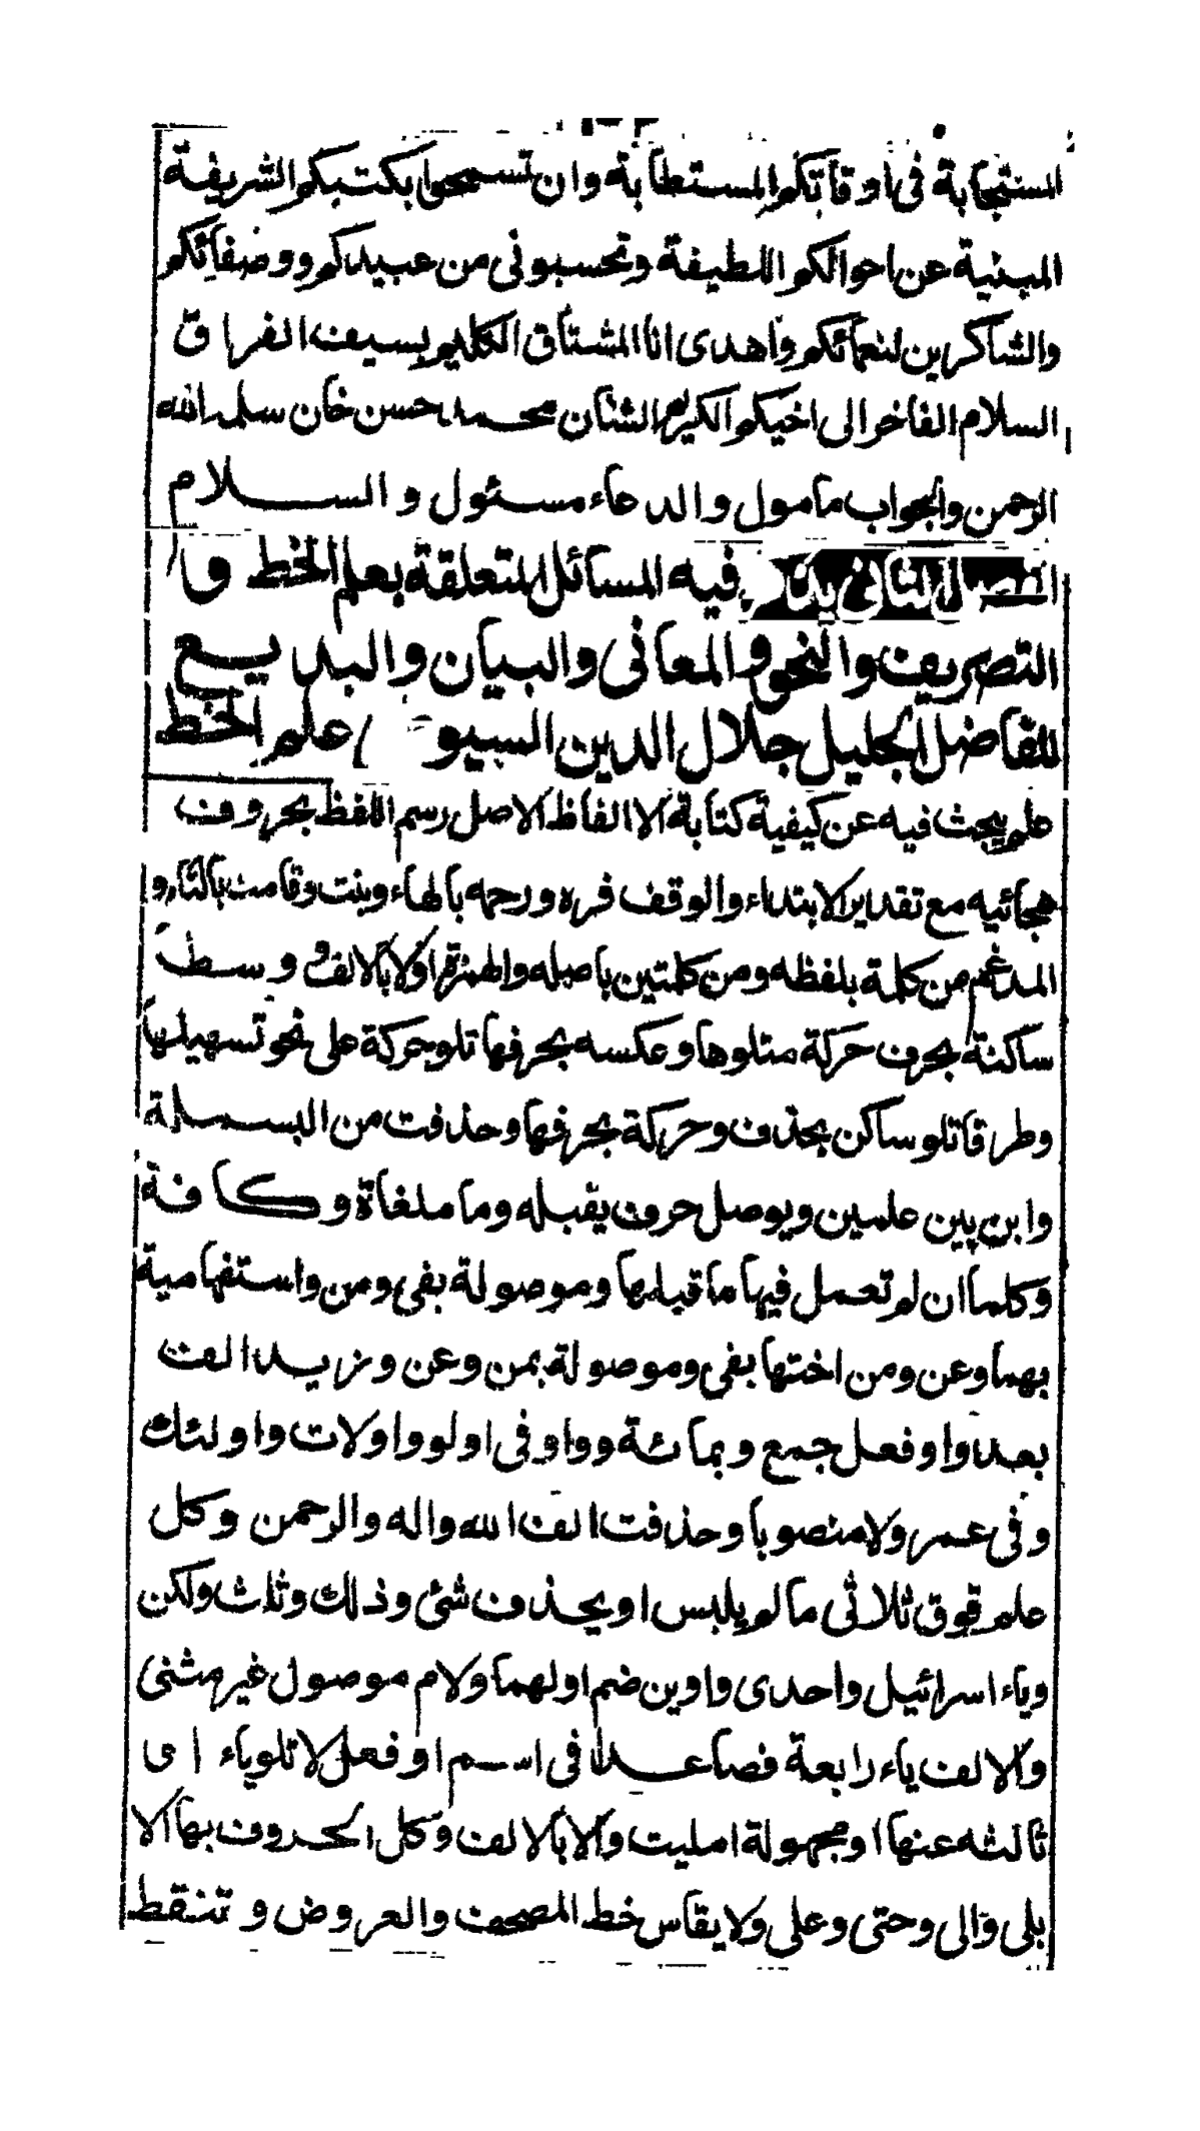 المستجابة فى اوقاتكم المستطابة وان تسمحوا بكتبكم الشريفة
المبنية عن احوالكم اللطيفة وتحسبونى من عبيدكم ووصفائكم
والشاكرين لنعمائكم واهدى انا المشتاق الكليم بسيف الفراق
السلام الفاخر الى اخيكم الكريم الشان محمد حسن خان سلمه الله
الرحمن والجواب مامول والدعاء مسئول والسلام
الثانى فيه المسائل المتعلقة بعلم الخط و
التصريف والنحو والمعانى والبيان والبديع
للفاضل الجليل جلال الدين السيو علم الخط
علم يبحث فيه عن كيفية كتابة الالفاظ الاصل رسم اللفظ بحروف
هجائيه مع تقدير الابتداء والوقف فره ورحمه بالهاء وبنت وقامت بالتاء و
المدغم من كلمة بلفظه ومن كلمتين باصله والهمزة اولا بالالف و وسطا
ساكنة بحرف حركة متلوها وعكسه بحرفها تلو حركة على نحو تسهيلها
وطرفا تلو ساكن بحذف وحركة بحرفها وحذفت من البسملة
وابن بين علمين ويوصل حرف يقبله وما ملغاة وكافة
وكلما ان لم تعمل فيها ما قبلها وموصولة بفى ومن واستفهامية
بهما وعن ومن اختها بفى وموصولة بمن وعن وزيد الف
بعد واو فعل جمع وبمائة وواو فى اولو واولات واولئك
وفى عمر ولا منصوبا وحذفت الف الله واله والرحمن وكل
علم فوق ثلاثى ما لم يلبس او يحذف شئ وذلك وثلث ولكن
وياء اسرائيل واحدى واوين ضم اولهما ولام موصول غير مثنى
والالف ياء رابعة فصاعدا فى اسم او فعل لا تلو ياء اى
ثالثه عنها او مجهولة امليت والا بالالف وكل الحروف بها الا
بلى والى وحتى وعلى ولا يقاس خط المصحف والعروض وتنقط